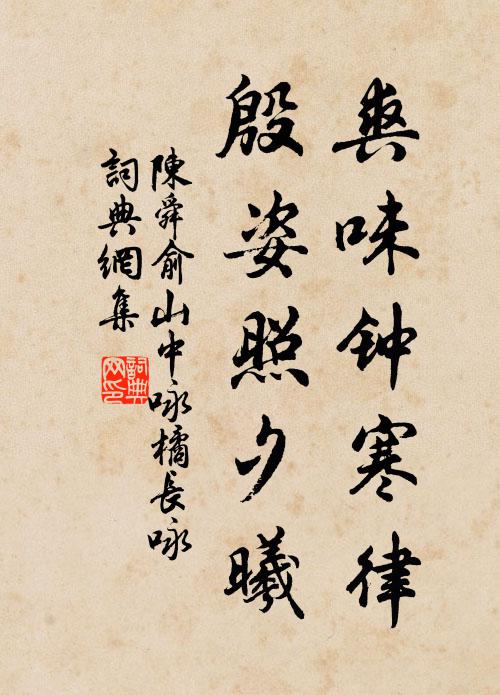 爽味钟寒律
殷姿照夕曦
陳舜俞山中咏橘長咏
詞典網集
詞典
网印